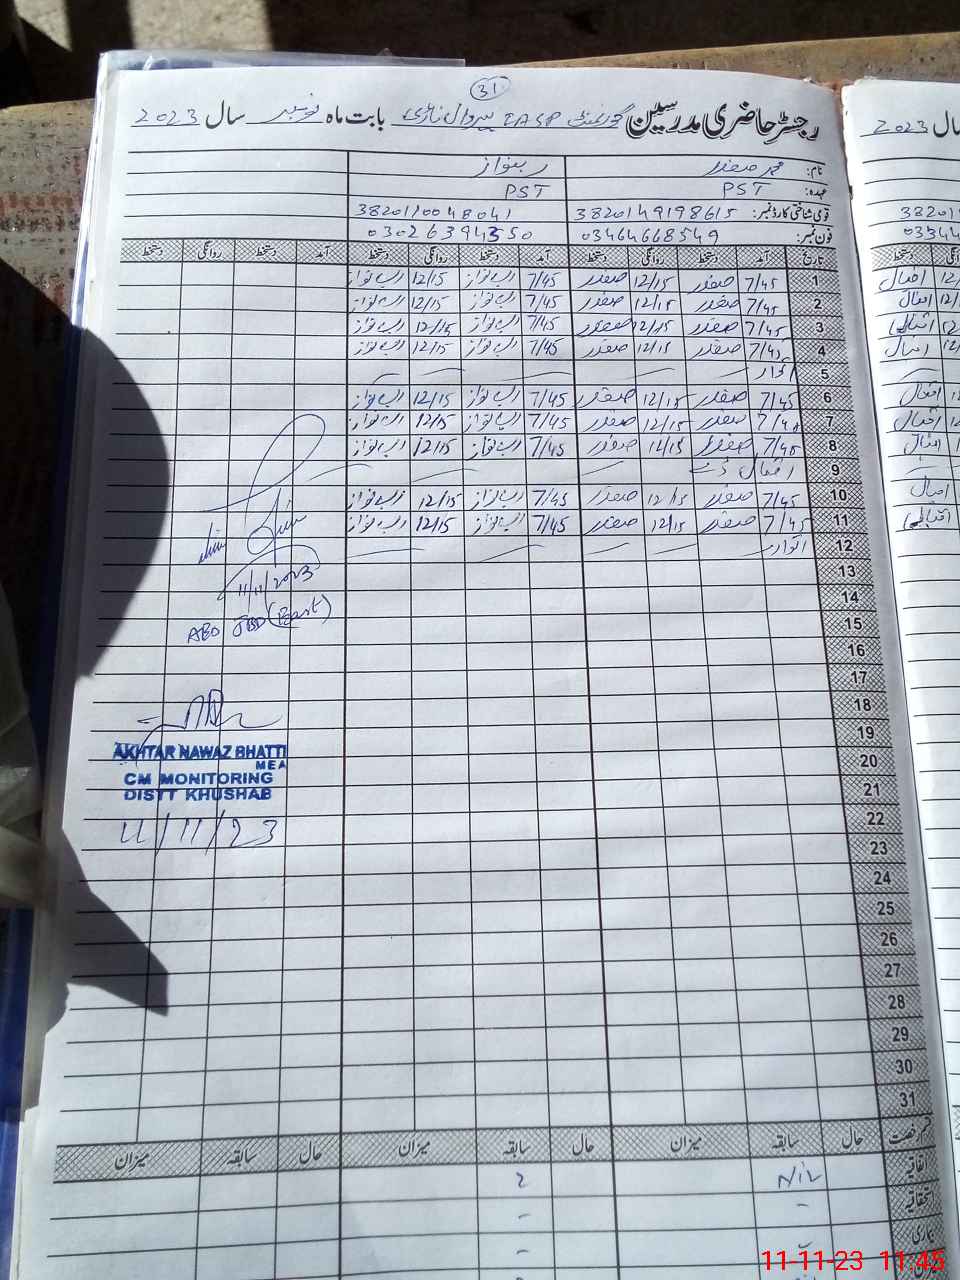 31
رجسٹر حاضری مدرسین گورنمنٹ بابت ماہ نومبر سال 2023
نام: محمد صفدر ربنواز
عہدہ: PST PST
قومی شناختی کارڈ نمبر: 3820149198615 3820110048041
فون نمبر: 03464668549 03026394350
تاریخ آمد دستخط روانگی دستخط آمد دستخط روانگی دستخط آمد دستخط روانگی دستخط
1 7/45 صفدر 12/15 صفدر 7/45 ربنواز 12/15 ربنواز
2 7/45 صفدر 12/15 صفدر 7/45 ربنواز 12/15 ربنواز
3 7/45 صفدر 12/15 صفدر 7/45 ربنواز 12/15 ربنواز
4 7/45 صفدر 12/15 صفدر 7/45 ربنواز 12/15 ربنواز
5 اتوار
6 7/45 صفدر 12/15 صفدر 7/45 ربنواز 12/15 ربنواز
7 7/45 صفدر 12/15 صفدر 7/45 ربنواز 12/15 ربنواز
8 7/45 صفدر 12/15 صفدر 7/45 ربنواز 12/15 ربنواز
9 اقبال ڈے
10 7/45 صفدر 12/15 صفدر 7/45 ربنواز 12/15 ربنواز
11 7/45 صفدر 12/15 صفدر 7/45 ربنواز 12/15 ربنواز
12 اتوار
13
14
15
16
17
18
19
20
21
22
23
24
25
26
27
28
29
30
31
11/11/2023
AKHTAR NAWAZ BHATTI
MEA
CM MONITORING
DISTT KHUSHAB
11/11/23
قسم رخصت حال سابقہ میزان حال سابقہ میزان حال سابقہ میزان
اتفاقیہ Nil 2
استحقاقیہ - -
بیماری - -
سال 2023
اقبال
اقبال
اقبال
اقبال
اقبال
اقبال
اقبال
اقبال
اقبال
11-11-23 11:45